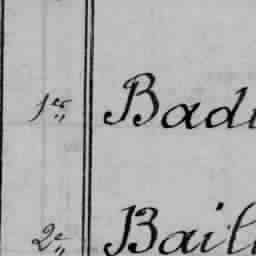 1er Badi
2e Bail